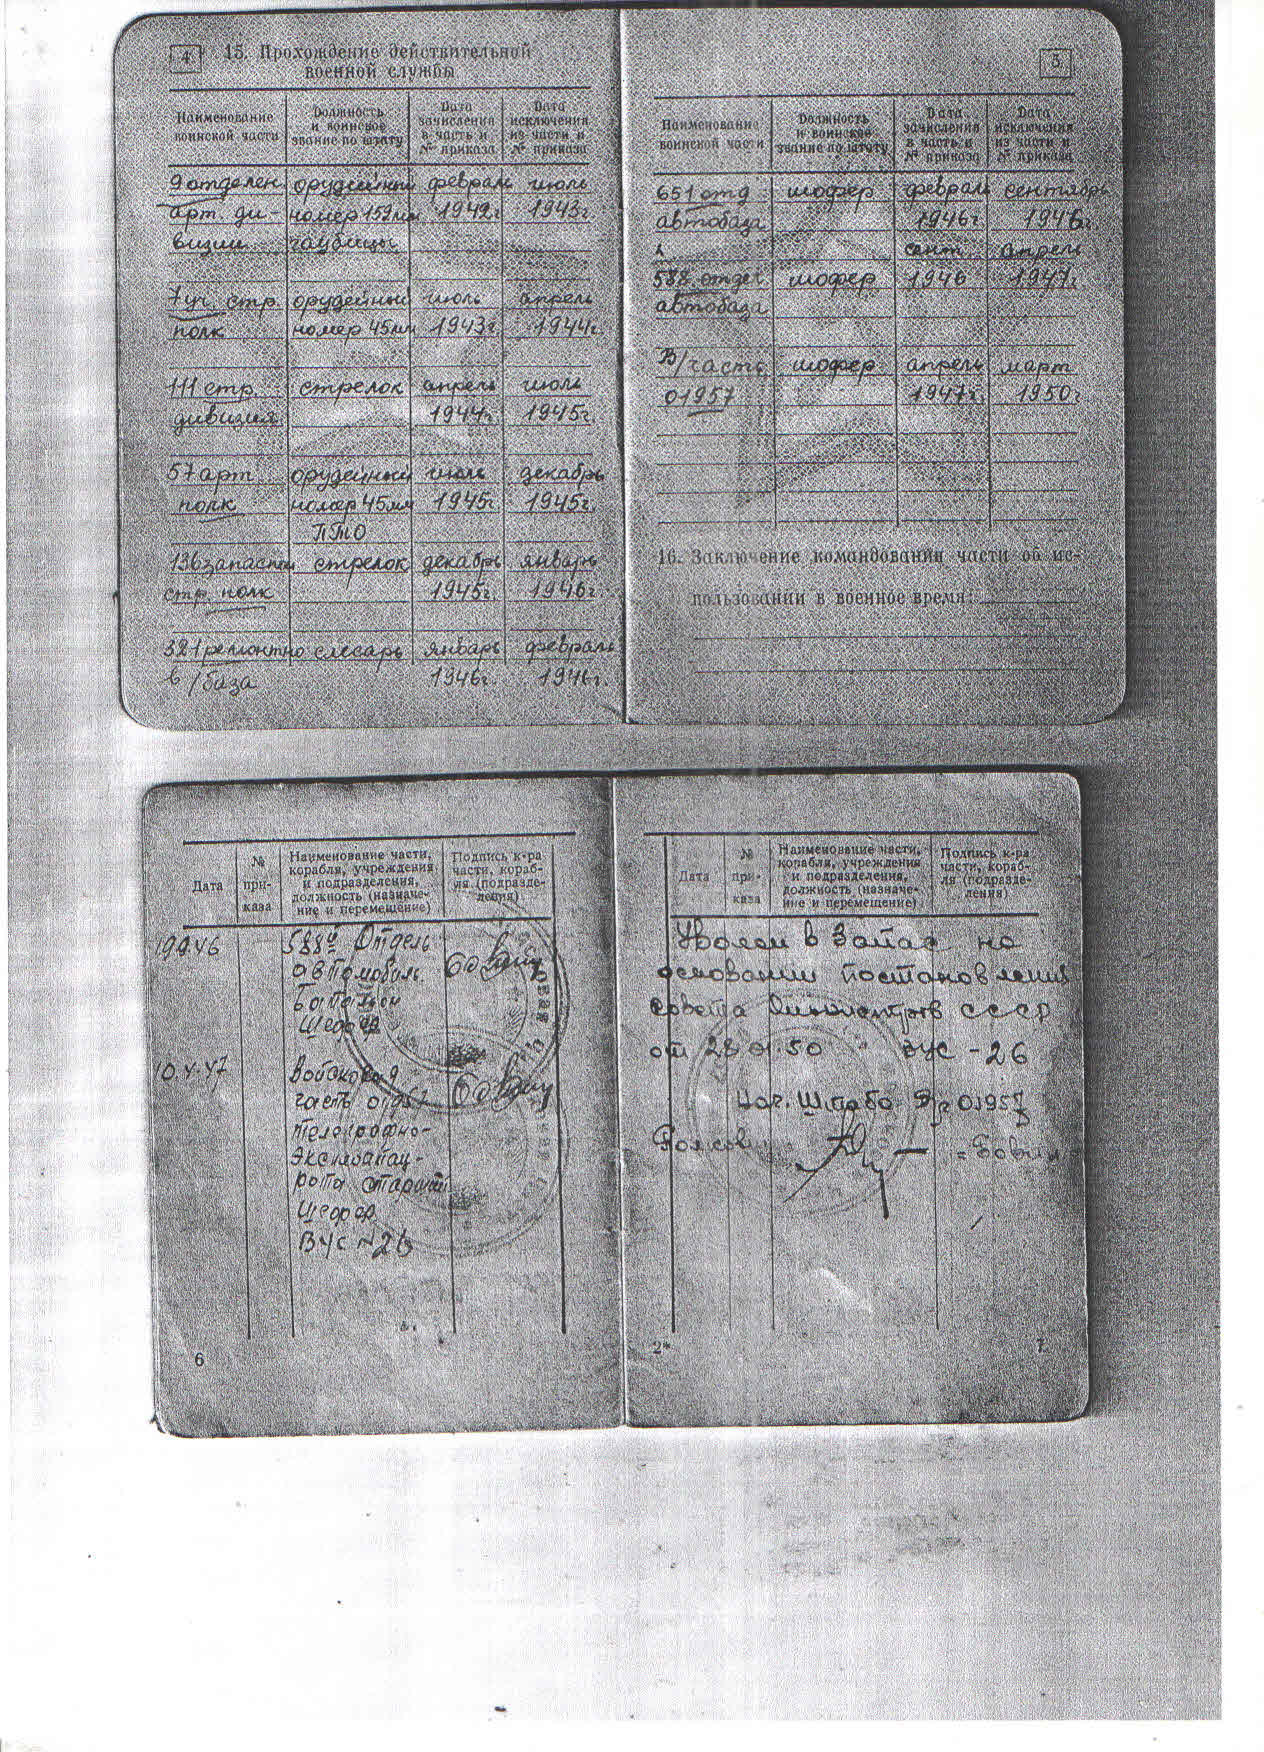 4
15. Прохождение действительной
военной службы
Наименование воинской части
Должность и воинское звание по штату
Дата зачисления в часть и № приказа
Дата исключения из части и № приказа
9 отделен орудейный февраль июль
арт. ди- номер 152мм 1942г 1943г
визии гаубицы
7 уч. стр. орудейный июль апрель
полк номер 45мм 1943г 1944г.
111 стр. стрелок апрель июль
дивизия 1944г. 1945г.
57 арт. орудейный июль декабрь
полк номер 45мм 1945г 1945г.
ПТО
136 запасной стрелок декабрь январь
стр. полк 1945г. 1946г
321 ремонтно слесарь январь февраль
в/база 1946г. 1946г.
5
Наименование воинской части
Должность и воинское звание по штату
Дата зачисления в часть и № приказа
Дата исключения из части и № приказа
651 отд шофер февраль сентябрь
автобаза 1946г 1946г.
сент апрель
588 отдел шофер 1946 1947г
автобаза
В/часть шофер апрель март
01957 1947г. 1950г
16. Заключение командования части об ис-
пользовании в военное время:
Дата
№ при-каза
Наименование части, корабля, учреждения и подразделения, должность (назначе-ние и перемещение)
Подпись к-ра части, кораб-ля (подразде-ления)
19.9.46 588й Отдель
автомобиль
батальон
Шофер
10.4.47 Войсковая
часть 01957
телеграфно-
эксплоатац-
рота старший
Шофер
ВУС №26
6
Дата
№ при-каза
Наименование части, корабля, учреждения и подразделения, должность (назначе-ние и перемещение)
Подпись к-ра части, кораб-ля (подразде-ления)
Уволен в запас на
основании постановления
совета министров СССР
от 28.01.50 " ВУС-26
Нач. Штаба В/ч 01957
2*
7